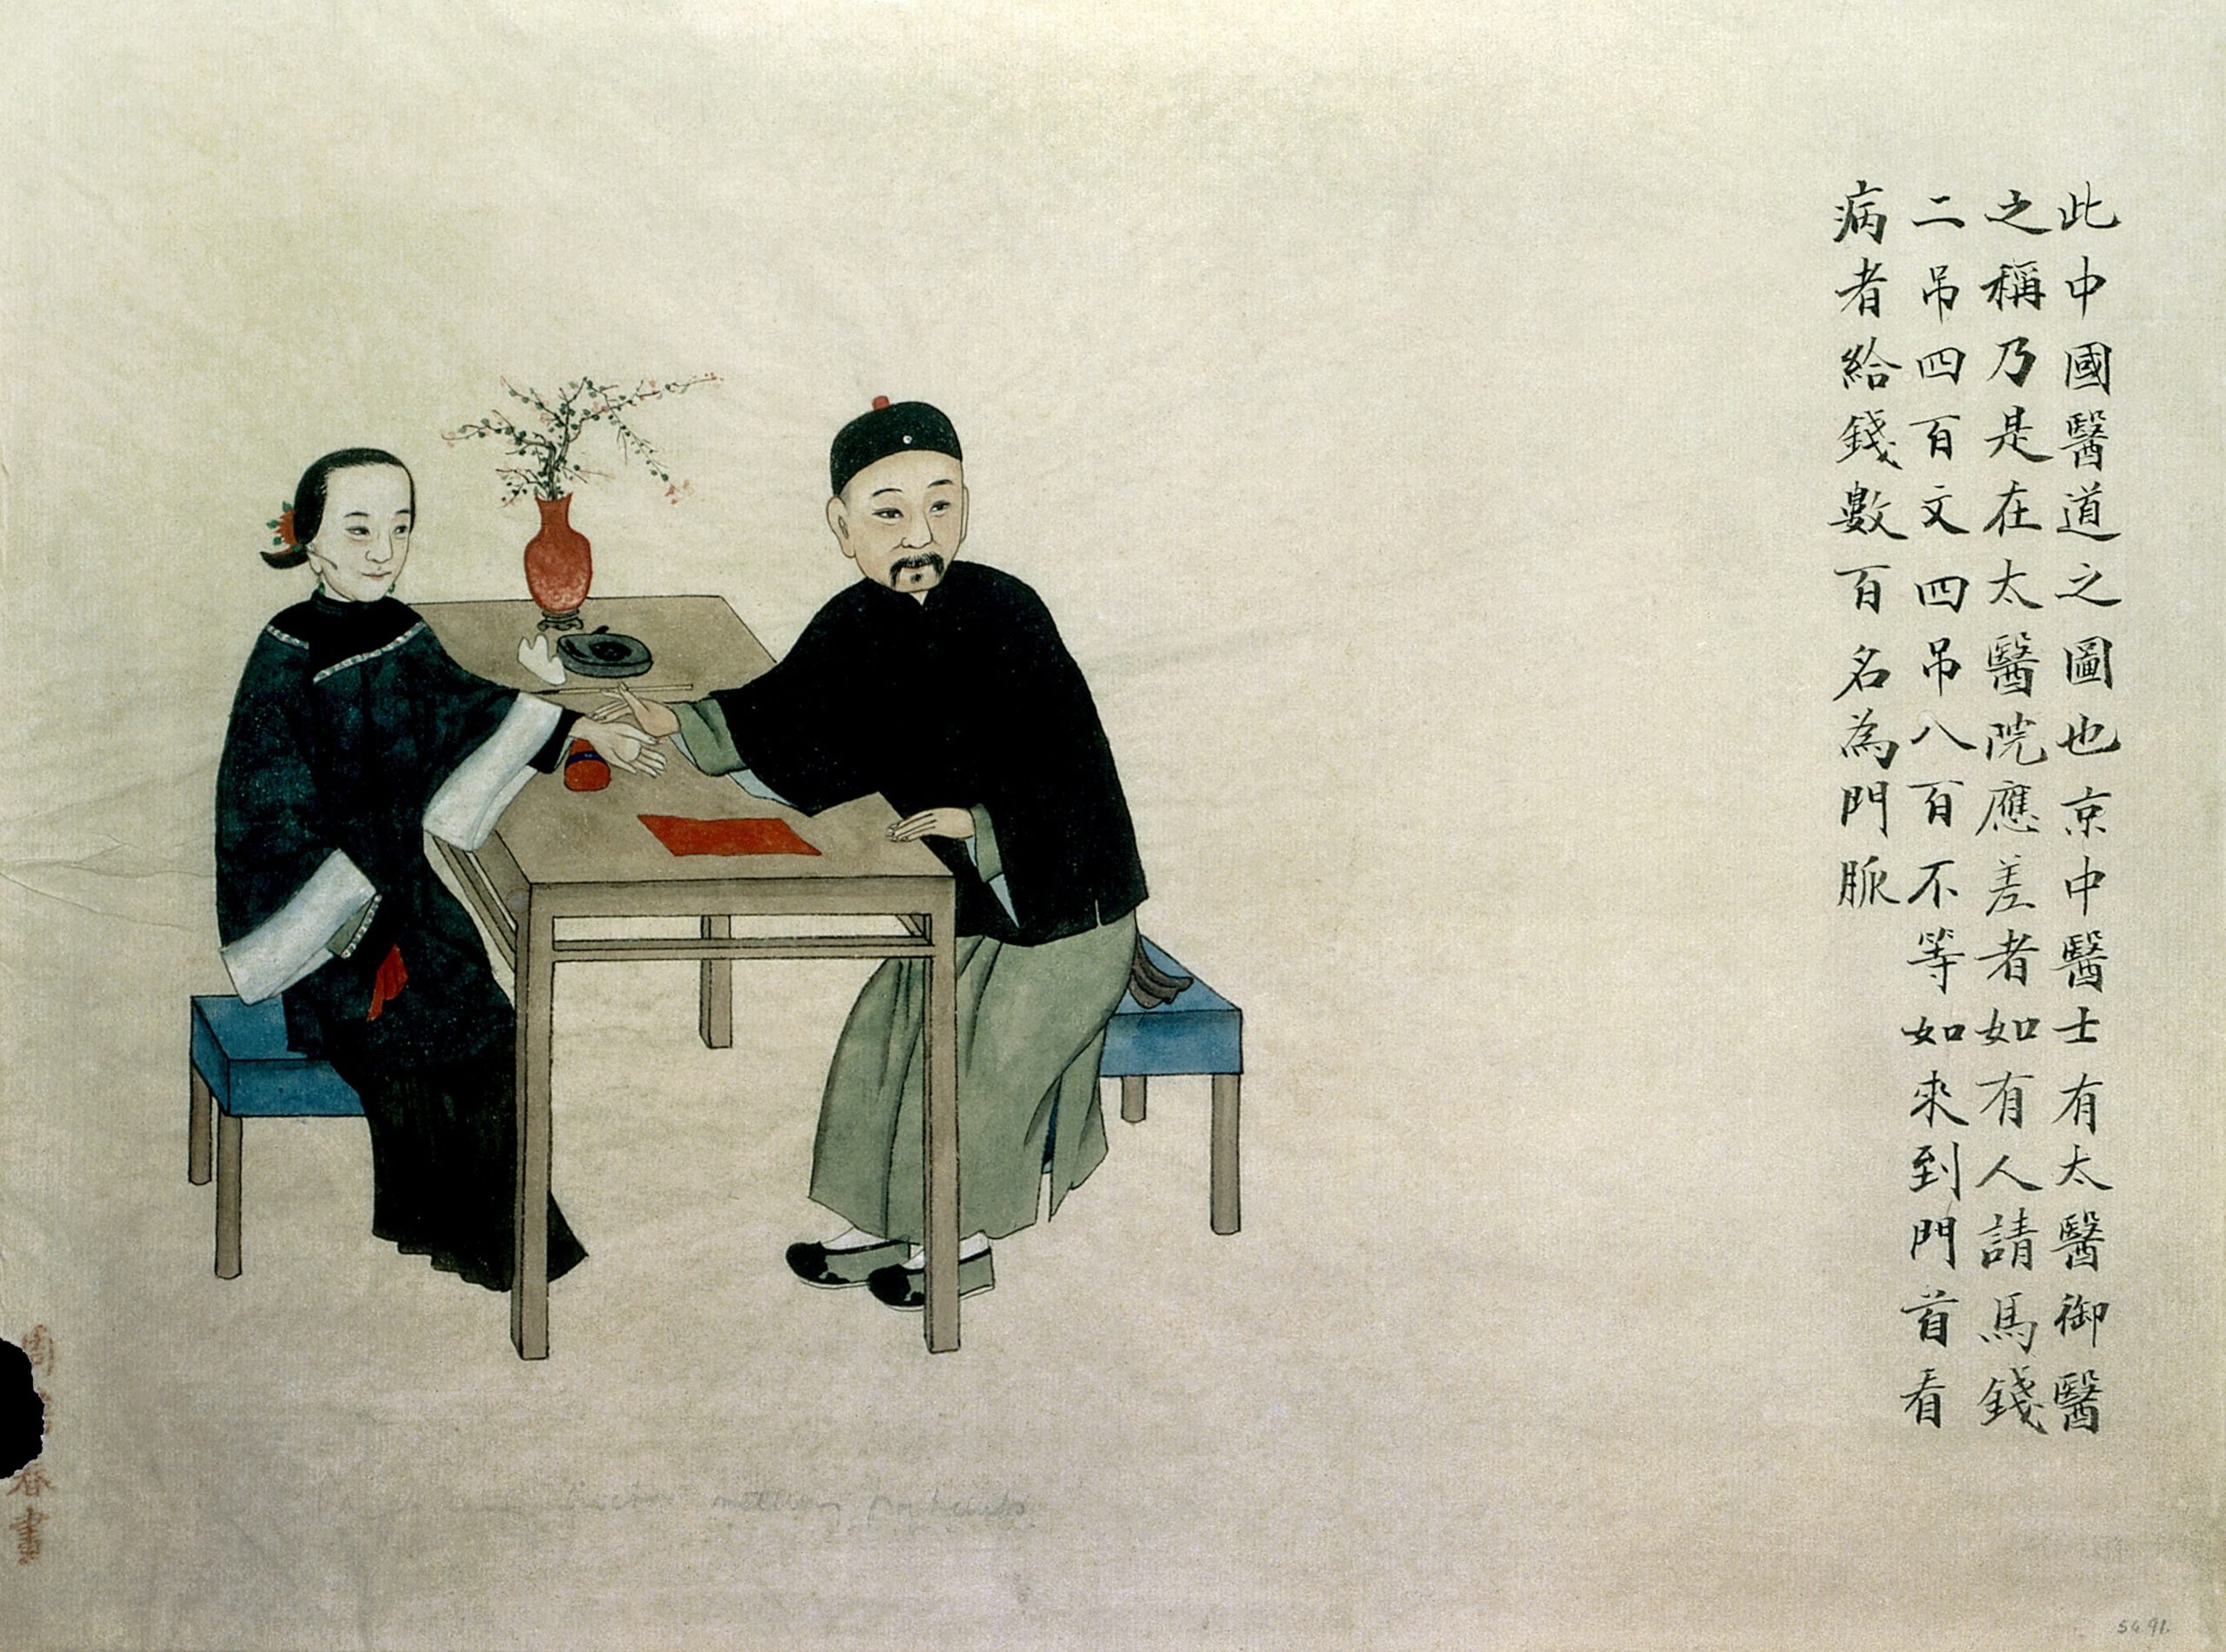 此中國醫道之圖也京中醫士有太醫御醫
之稱乃是在太醫院應差者如有人請馬錢
二吊四百文四吊八百不等如來到門首看
病者給錢數百名為門脈
周
春畫
5491.